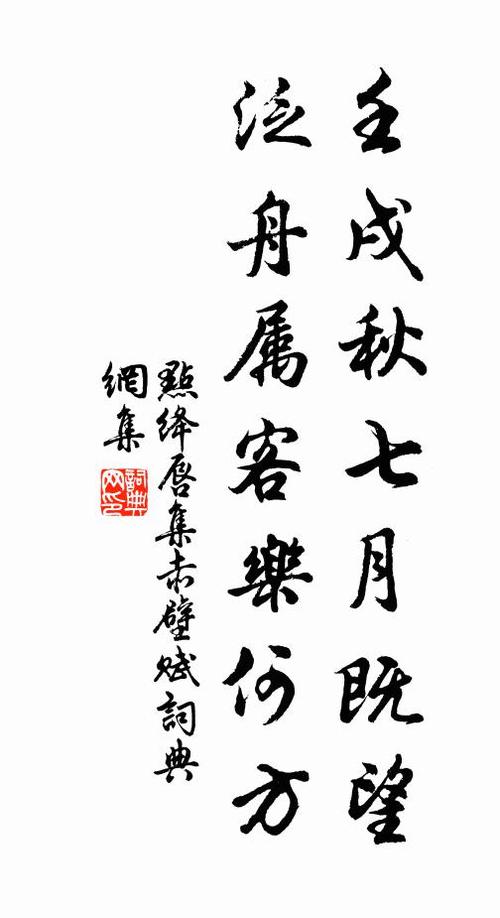 壬戌秋七月既望
泛舟属客樂何方
點绛唇集赤壁赋詞典
網集
詞典網印